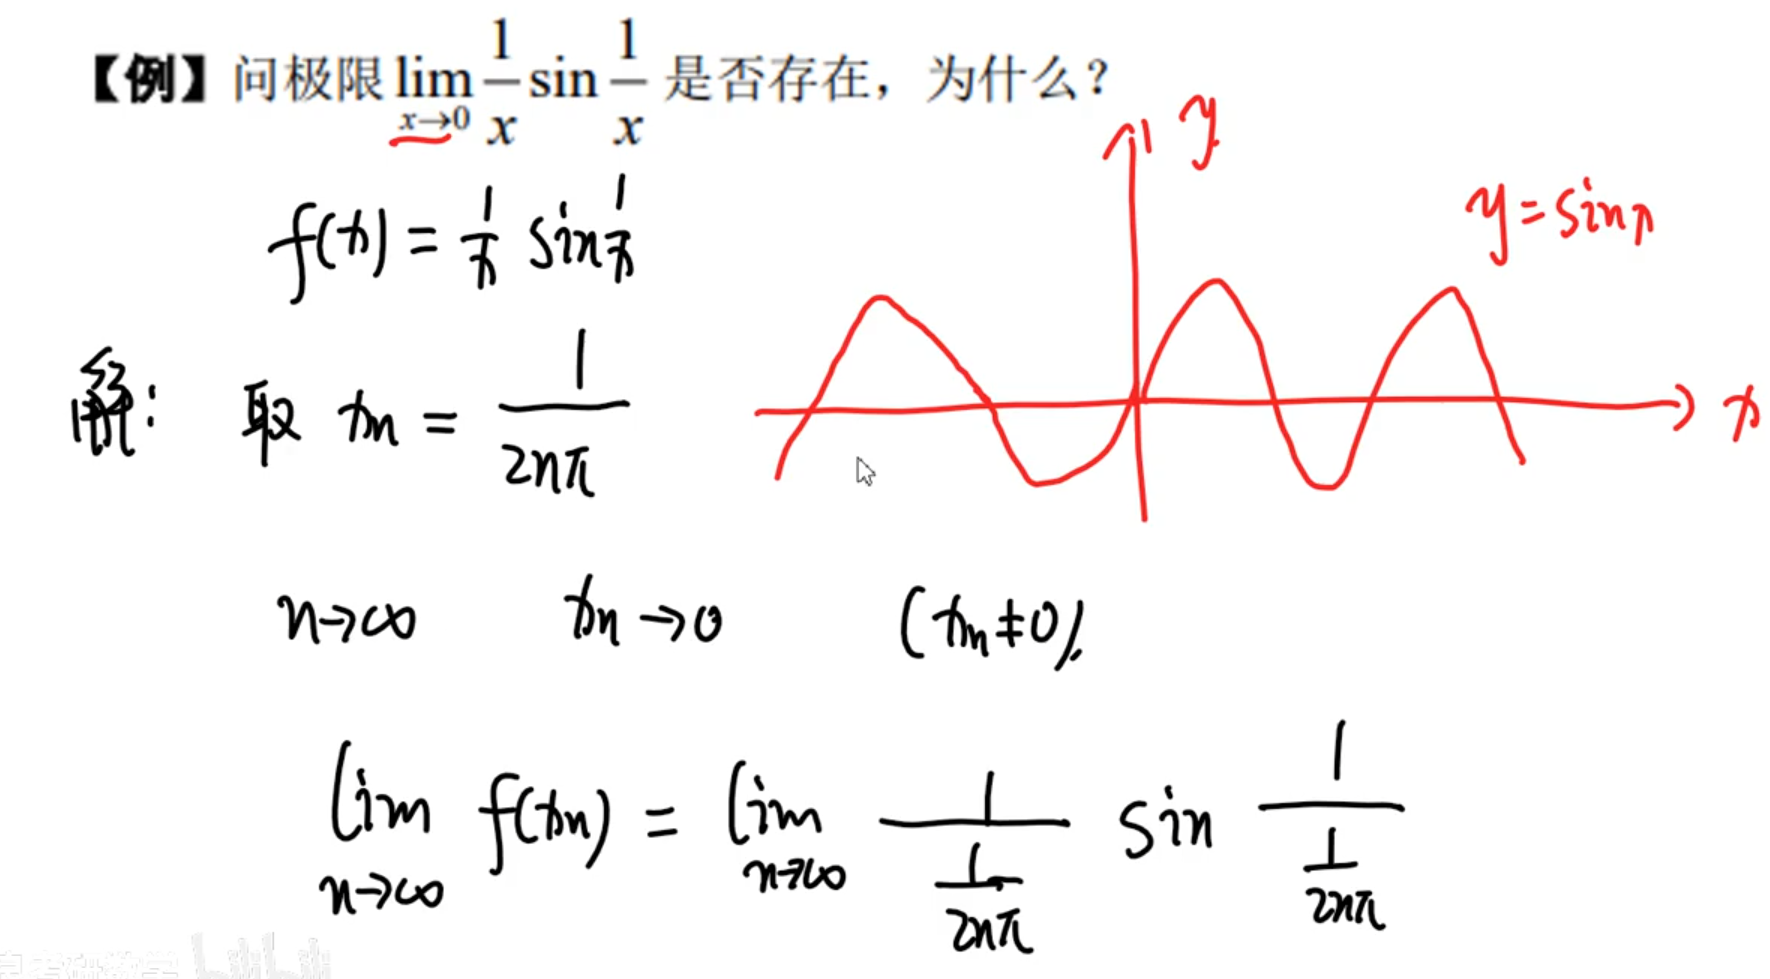 【例】问极限 lim x→0 1/x sin 1/x 是否存在，为什么？
y
y=sinx
f(x) = 1/x sin 1/x
解: 取 xn = 1/2nπ
x
n→∞ xn→0 (xn≠0).
lim n→∞ f(xn) = lim n→∞ 1/(1/2nπ) sin 1/(1/2nπ)